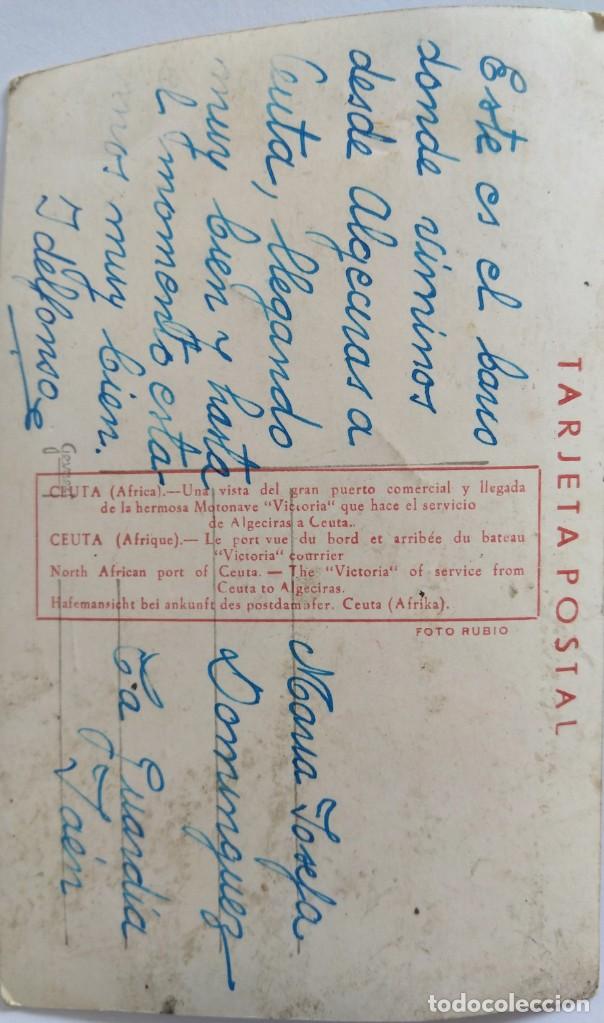 TARJETA POSTAL
Este es el barco
donde vinimos
desde Algeciras a
Ceuta, llegando
muy bien y hasta
el momento esta
mos muy bien.
Idelfonso
CEUTA (Africa).—Una vista del gran puerto comercial y llegada
de la hermosa Motonave "Victoria" que hace el servicio
de Algeciras a Ceuta.
CEUTA (Afrique).— Le port vue du bord et arribée du bateau
"Victoria" courrier
North African port of Ceuta. — The "Victoria" of service from
Ceuta to Algeciras.
Hafemansicht bei ankunft des postdamfer. Ceuta (Afrika).
FOTO RUBIO
Maria Josefa
Dominguez
La Guardia
Jaén
todocoleccion